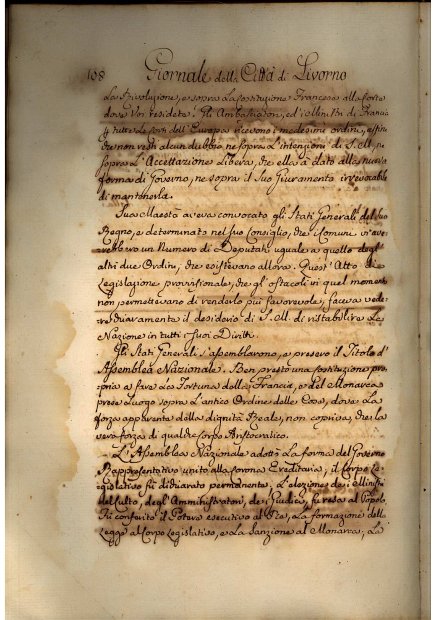 108 Giornale della Città di Livorno
La Rivoluzione, e sopra La Costituzione Francese alla Corte
dove Voi risedete. Gli Ambasciatori, ed i Ministri di Francia
a tutte Le Corti dell'Europa ricevono i medesimi ordini, affin
che non resti alcun dubbio ne sopra L'intenzioni di S. M., ne
sopra L'Accettazione Libera, che ella à dato alla nuova
forma di Governo, ne sopra il Suo Giuramento irrevocabile
di mantenerla.
Sua Maestà aveva convocato gli Stati Generali del Suo
Regno, e determinato nel suo Consiglio, che i Comuni v'avr
ebbero un Numero di Deputati uguale a quello degl'
altri due Ordini, che esistevano allora. Quest'Atto di
Legislazione provvisionale, che gl'ostacoli in quel moment
non permettevano di renderlo più favorevole, faceva vede
re chiaramente il desiderio di S. M. di ristabilire La
Nazione in tutti i Suoi Diritti.
Gli Stati Generali s'assemblarono, e presero il Titolo d'
Assemblea Nazionale. Ben presto una Costituzione pro
pria a fare La Fortuna della Francia, e del Monarca
prese Luogo sopra L'antico Ordine delle Cose, dove La
forza apparente della dignità Reale, non copriva, che la
vera forza di qualche Corpo Aristocratico.
L'Assemblea Nazionale adottò La forma del Governo
Rappresentativo unito alla Corona Ereditaria, il Corpo Le
gislativo fù dichiarato permanente, L'elezione de i Ministri
del Culto, degl'Amministratori, de i Giudici, fu resa al Popolo
Fù conferito il Potere esecutivo al Rè, La formazione della
Legge al Corpo Legislativo, e La Sanzione al Monarca, La